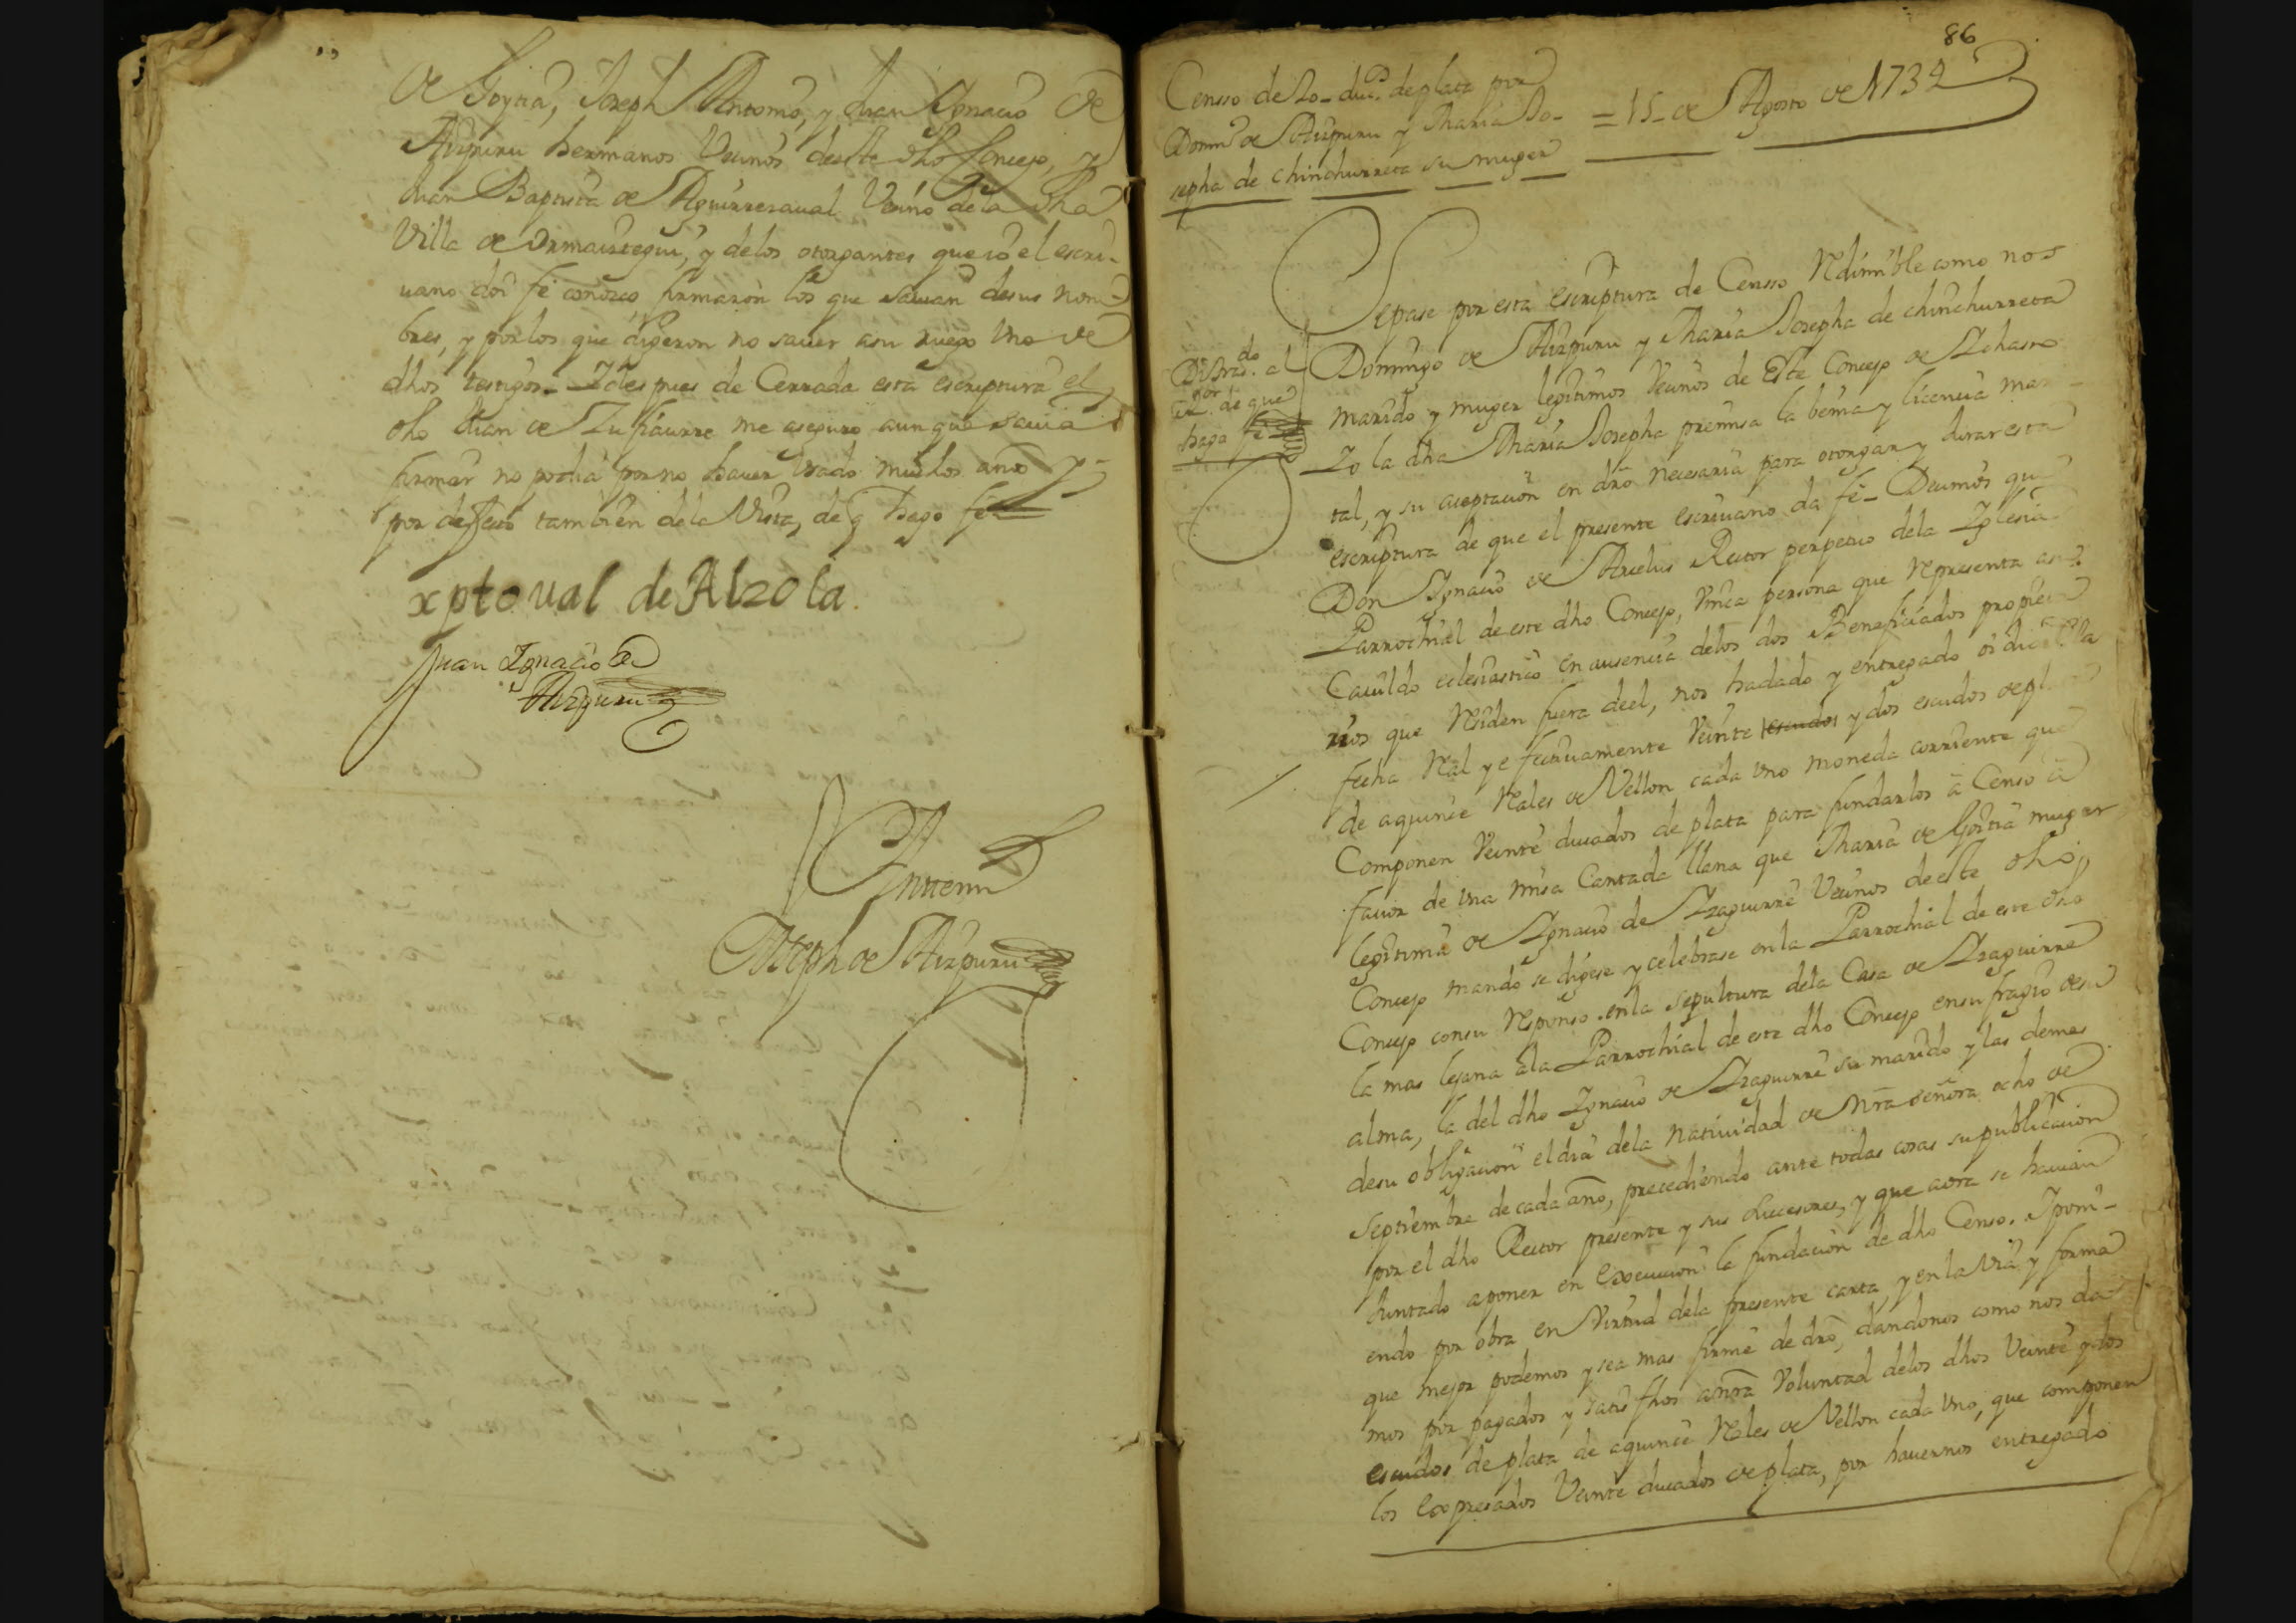 de Goytia, Joseph Antonio, y Juan Ignacio de
Aizpuru hermanos Vecinos deeste dho Concejo, y
Juan Baptista de Aguirresaual Vecino dela dha
Villa de Ormaiztegui, y delos otorgantes que io el escri-
uano doi fe conozco, firmaron los que sauian desus nom-
bres, y porlos que digeron no sauer asu ruego Uno de
dhos testigos. Y despues de Cerrada esta escriptura el
dho Juan de me aseguro aunque sauia
firmar no podia porno hauer Usado muchos años y
por defecto tambien dela Vista, de q hago fe
xptoual de Alzola.
Juan Ignacio de
Aizpuru
Antemi
Joseph de Aizpuru
86
Censso de 20_ duc.s de plata por
Domo de Aizpuru y Maria Jo-
sepha de chinchurreta su muger
= 15_ de Agosto de 1732
Sepase por esta escriptura de Censso Redimible como nos
Domingo de Aizpuru y Maria Josepha de chinchurreta
marido y muger legitimos Vecinos de Este Concejo de Ichasso
Yo la dha Maria Josepha premisa la benia y licencia mari-
tal, y su aceptacion en dro necesaria para otorgar y Jurar esta
escriptura de que el presente escriuano da fe_ Decimos que
Don Ignacio de Arcelus Rector perpetuo dela Iglesia
Parrochial de este dho Concejo, Unica persona que Representa asu
Cauildo eclesiastico en ausencia delos dos Beneficiados propieta
rios que Residen fuera deel, nos hadado y entregado oi dia dela
fecha Real y efectiuamente Veinte escudos y dos escudos de pl
de aquince Reales de Vellon cada Uno moneda corriente que
Componen Veinte ducados de plata para fundarlos a Censo a
fauor de Una misa Cantada llana que Maria de Goitia muger
legitima de Ignacio de Izaguirre Vecinos de este dho
Concejo mando se digese y celebrase en la Parrochial de este dho
Concejo consu Responso enla sepultura dela Casa de Izaguirre
la mas lejana ala Parrochial de este dho Concejo ensufragio desu
alma, la del dho Ignacio de Izaguirre su marido y las demas
desu obligacion el dia dela Natiuidad de Nra Señora ocho de
septiembre de cada año, precediendo ante todas cosas su publicacion
por el dho Rector presente y sus subcesores, y que aora se hauian
Juntado aponer en Execucion la fundacion de dho Censo. Iponi-
endo por obra en Virtud dela presente carta, y en la Via y forma
que mejor podemos y sea mas firme de dro, dandonos como nos da-
mos por pagados y satisfhos anra Voluntad delos dhos Veinte y dos
escudos de plata de aquince Reales de Vellon cada Uno, que componen
los Expresados Veinte ducados de plata, por hauernos entregado
de que
hago fe